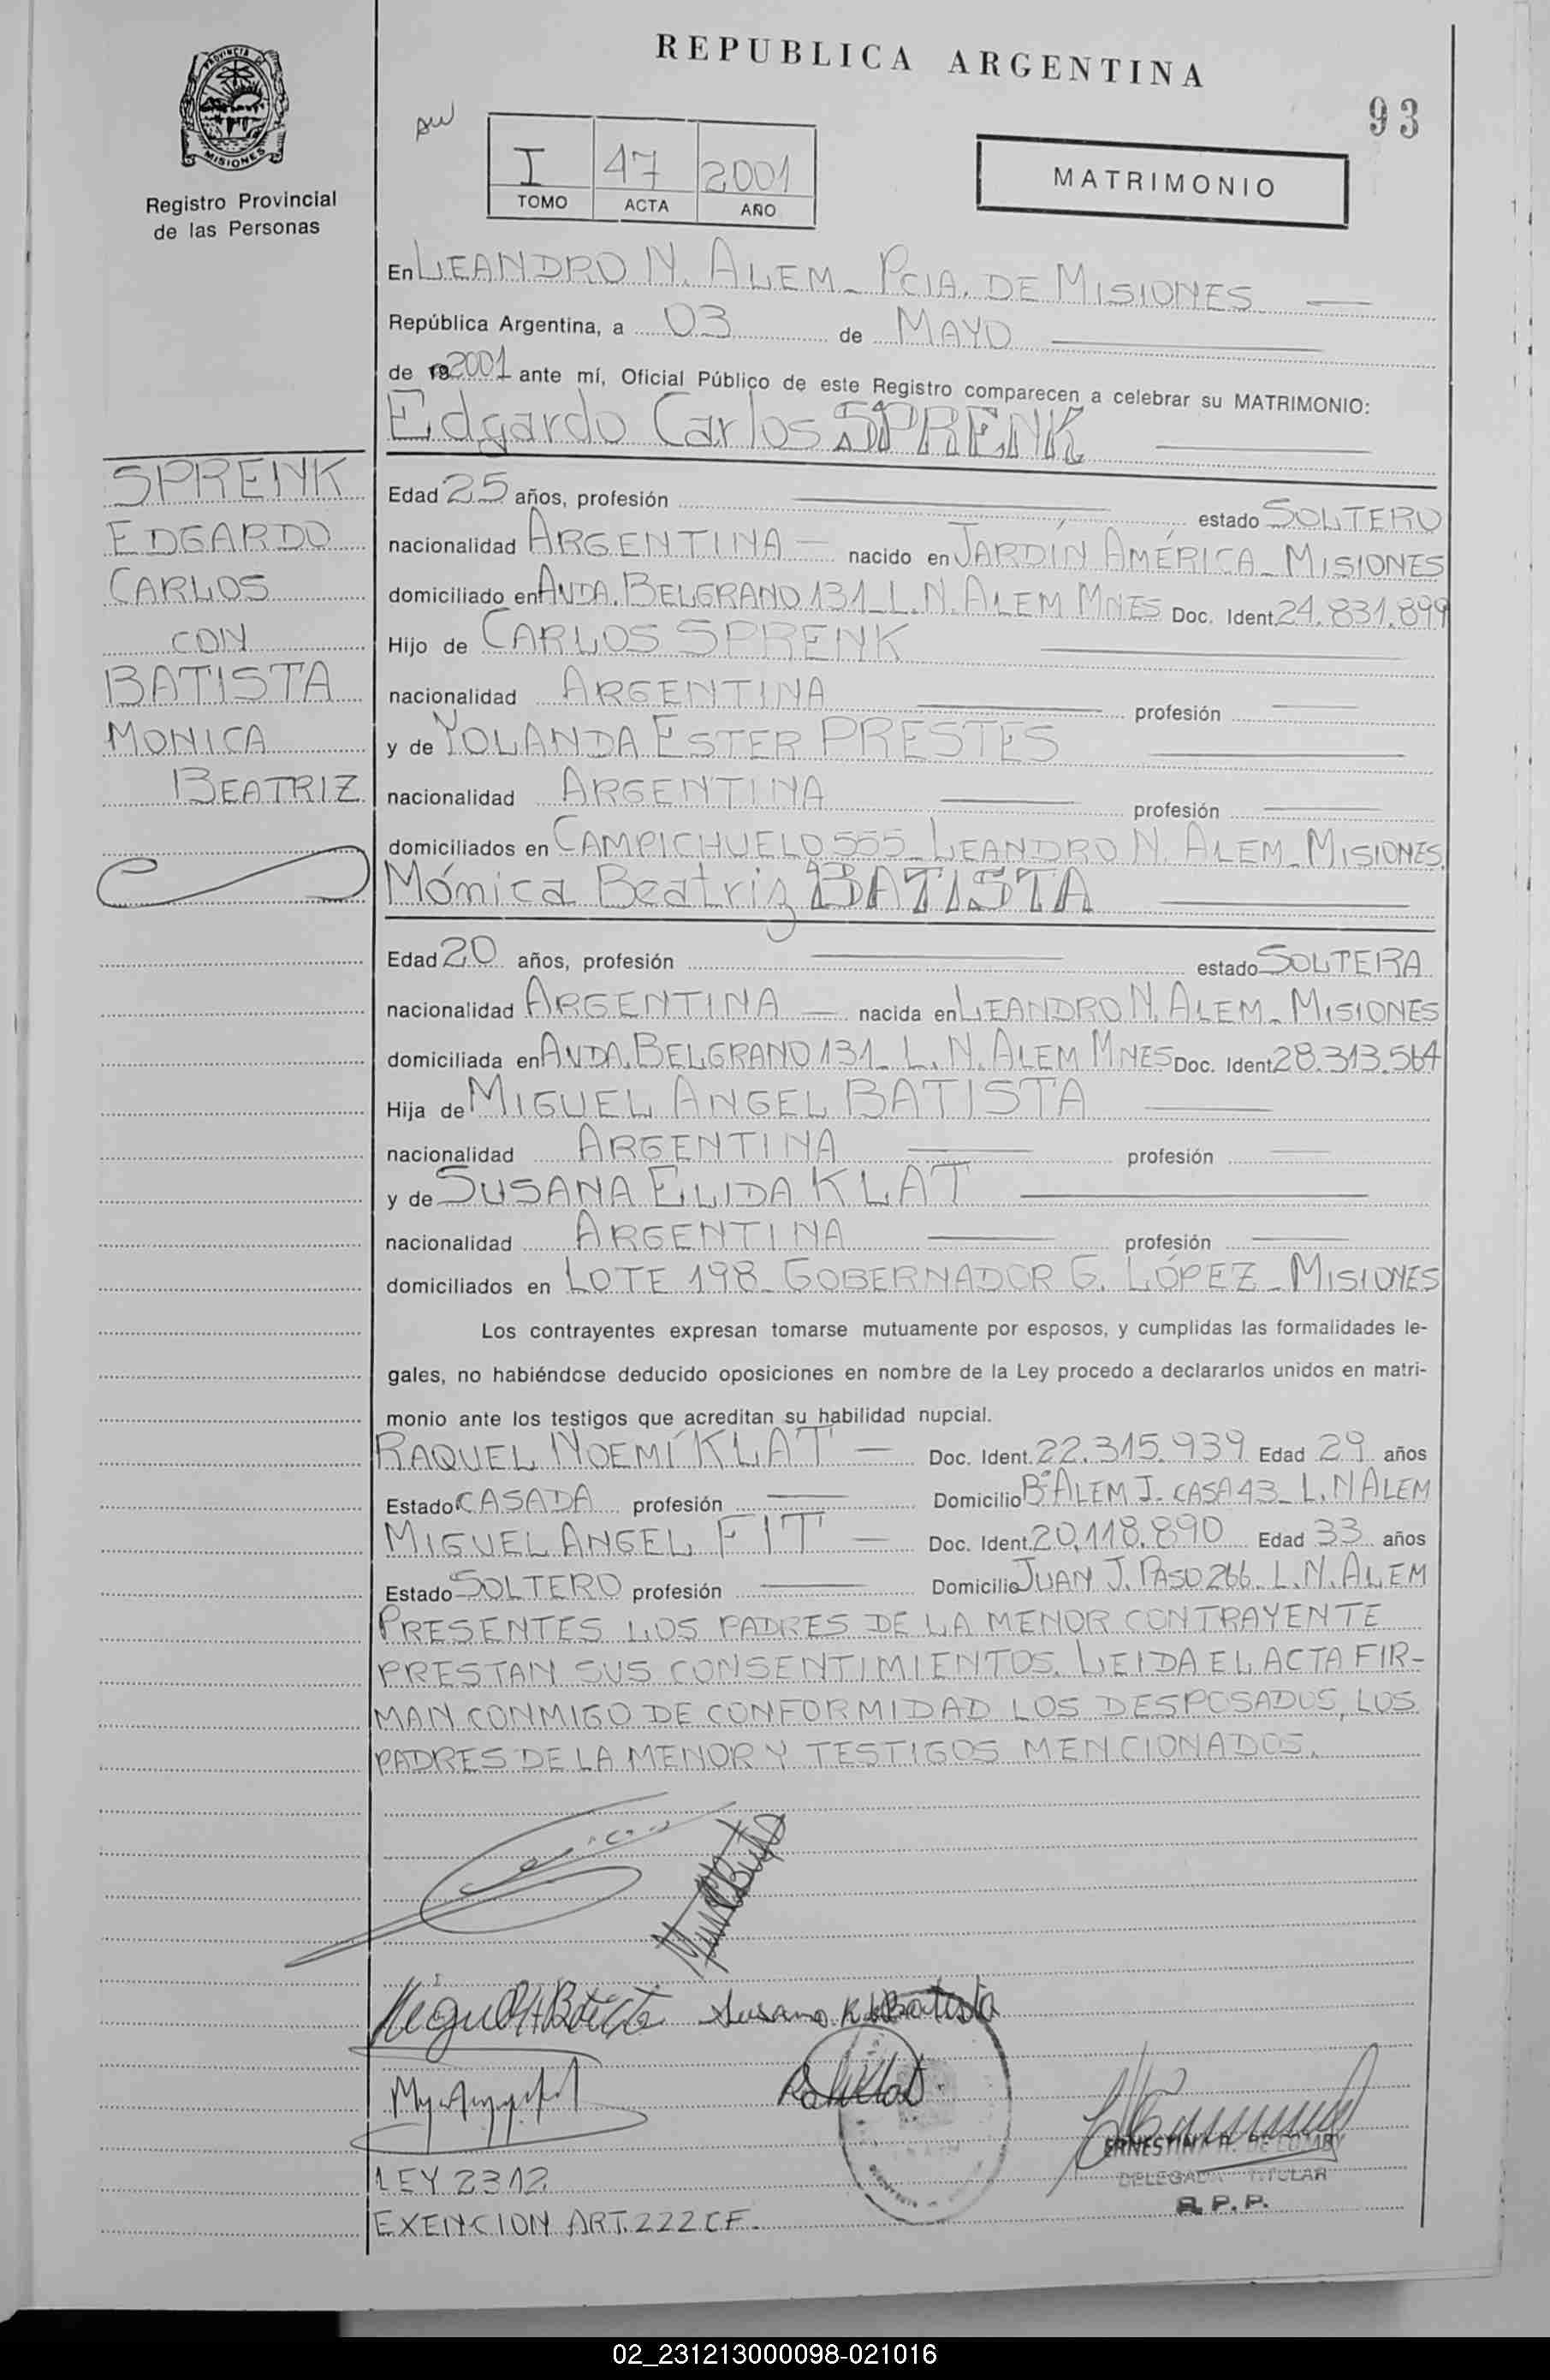 REPUBLICA ARGENTINA
93
PROVINCIA D
MISIONES
Registro Provincial
de las Personas
I 47 2001
TOMO ACTA AÑO
MATRIMONIO
En LEANDRO N. ALEM_ PCIA. DE MISIONES
República Argentina, a 03 de MAYO
de 192001 ante mí, Oficial Público de este Registro comparecen a celebrar su MATRIMONIO:
Edgardo Carlos SPRENK
SPRENK
EDGARDO
CARLOS
CON
BATISTA
MONICA
BEATRIZ
Edad 25 años, profesión estado SOLTERO
nacionalidad ARGENTINA nacido en JARDÍN AMÉRICA_ MISIONES
domiciliado en AVDA. BELGRANO 131_ L.N. ALEM MNES Doc. Ident. 24.831.899
Hijo de CARLOS SPRENK
nacionalidad ARGENTINA profesión
y de YOLANDA ESTER PRESTES
nacionalidad ARGENTINA profesión
domiciliados en CAMPICHUELO 555_ LEANDRO N. ALEM_ MISIONES.
Mónica Beatriz BATISTA
Edad 20 años, profesión estado SOLTERA
nacionalidad ARGENTINA nacida en LEANDRO N. ALEM_ MISIONES
domiciliada en AVDA. BELGRANO 131_ L.N. ALEM MNES Doc. Ident. 28.313.564
Hija de MIGUEL ANGEL BATISTA
nacionalidad ARGENTINA profesión
y de SUSANA ELIDA KLAT
nacionalidad ARGENTINA profesión
domiciliados en LOTE 198_ GOBERNADOR G. LÓPEZ_ MISIONES
Los contrayentes expresan tomarse mutuamente por esposos, y cumplidas las formalidades le-
gales, no habiéndose deducido oposiciones en nombre de la Ley procedo a declararlos unidos en matri-
monio ante los testigos que acreditan su habilidad nupcial.
RAQUEL NOEMÍ KLAT Doc. Ident. 22.315.939 Edad 29 años
Estado CASADA profesión Domicilio Bº ALEM I_ CASA 43_ L.N ALEM
MIGUEL ANGEL FIT Doc. Ident. 20.118.890 Edad 33 años
Estado SOLTERO profesión Domicilio JUAN J. PASO 266_ L.N. ALEM
PRESENTES LOS PADRES DE LA MENOR CONTRAYENTE
PRESTAN SUS CONSENTIMIENTOS. LEIDA EL ACTA FIR-
MAN CONMIGO DE CONFORMIDAD LOS DESPOSADOS, LOS
PADRES DE LA MENOR Y TESTIGOS MENCIONADOS.
Miguel A Batista Susana K de Batista
ERNESTINA R. DE
DELEGADA TITULAR
R.P.P.
LEY 2312
EXENCION ART. 222 CF.
02_231213000098-021016